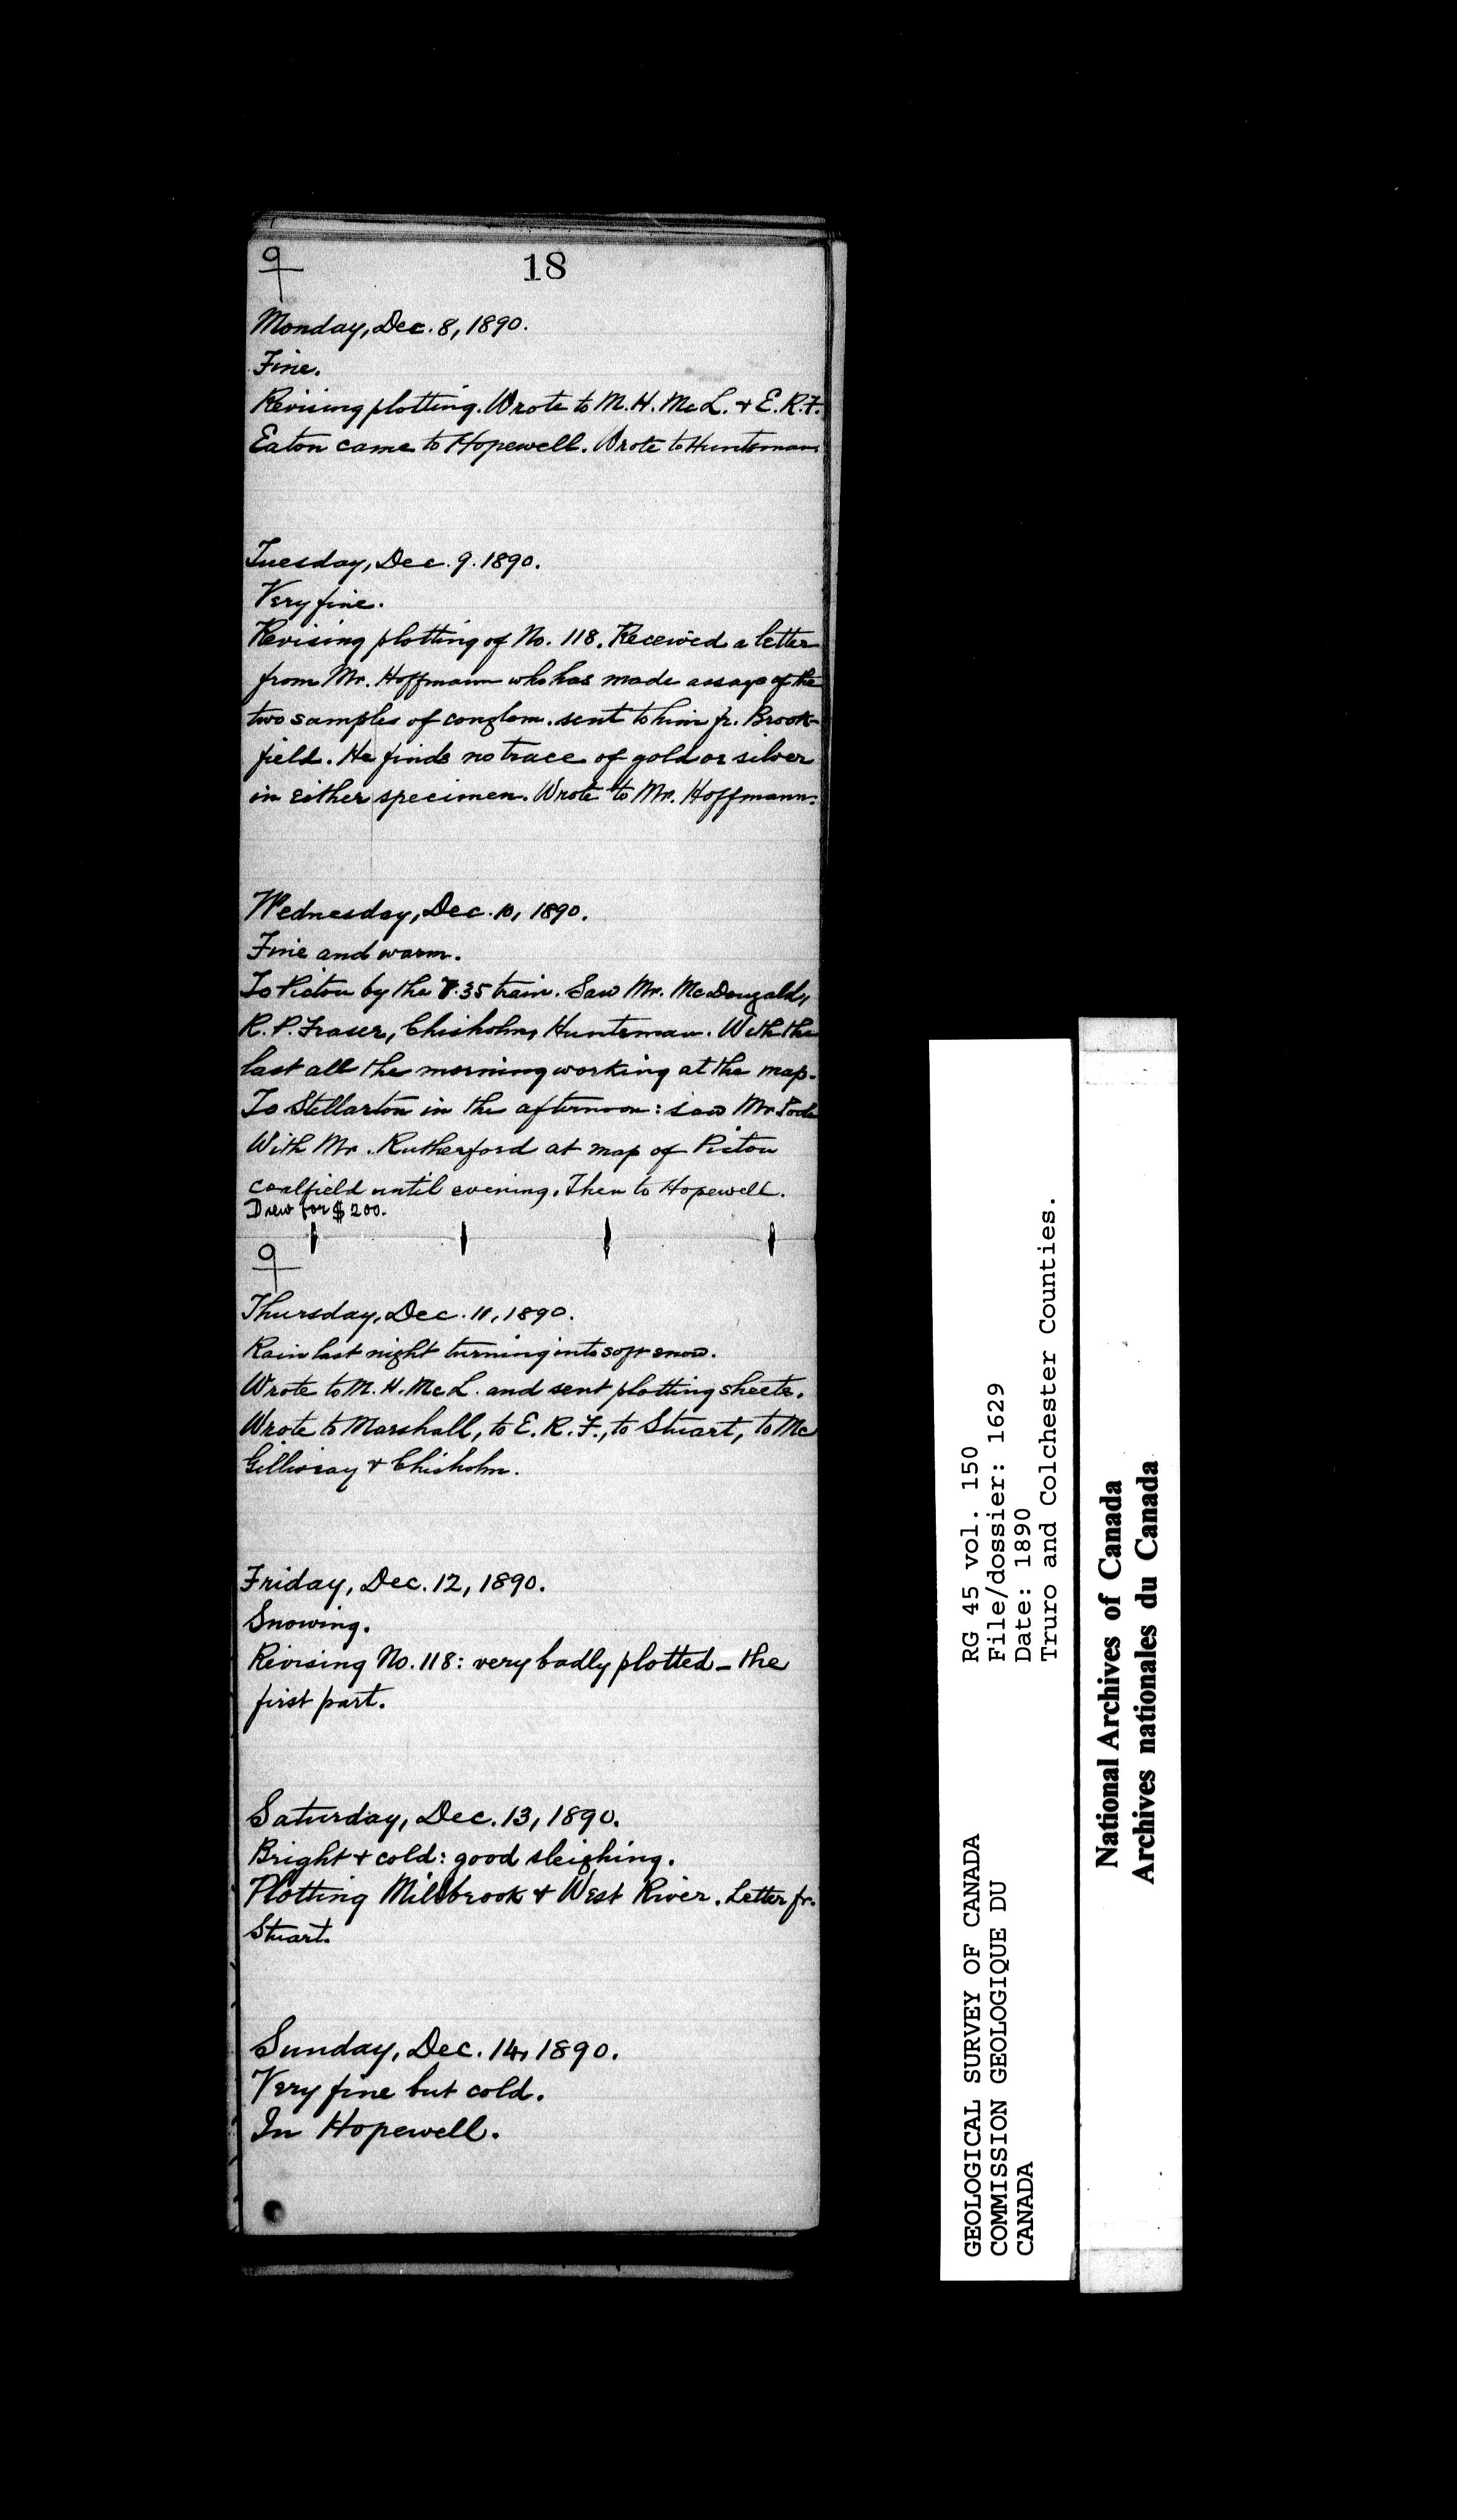 18
Monday, Dec. 8, 1890.
Fine.
Revising plotting. Wrote to M. H. McL. & E. R. F.
Eaton came to Hopewell. Wrote to Huntsman
Tuesday, Dec. 9. 1890.
Very fine.
Revising plotting of No. 118. Received a letter
from Mr. Hoffmann who has made assays of the
two samples of conglom. sent to him fr. Brook-
field. He finds no trace of gold or silver
in either specimen. Wrote to Mr. Hoffmann.
Wednesday, Dec. 10, 1890.
Fine and warm.
To Pictou by the .35 train. Saw Mr. McDougald,
R. P. Fraser, Chisholm, Huntsman. With the
last all the morning working at the map.
To Stellarton in the afternoon: saw Mr Poole
With Mr. Rutherford at map of Pictou
coalfield until evening. Then to Hopewell.
Drew for $200.
Thursday, Dec. 11, 1890.
Rain last night turning into soft snow.
Wrote to M. H. McL. and sent plotting sheets.
Wrote to Marshall, to E. R. F., to Stuart, to Mc
Gillivray & Chisholm.
Friday, Dec. 12, 1890.
Snowing.
Revising No. 118: very badly plotted – the
first part.
Saturday, Dec. 13, 1890.
Bright & cold: good sleighing.
Plotting Millbrook & West River. Letter fr.
Stuart.
Sunday, Dec. 14, 1890.
Very fine but cold.
In Hopewell.
GEOLOGICAL SURVEY OF CANADA
COMMISSION GEOLOGIQUE DU
CANADA
RG 45 vol. 150
File/dossier: 1629
Date: 1890
Truro and Colchester Counties.
National Archives of Canada
Archives nationales du Canada